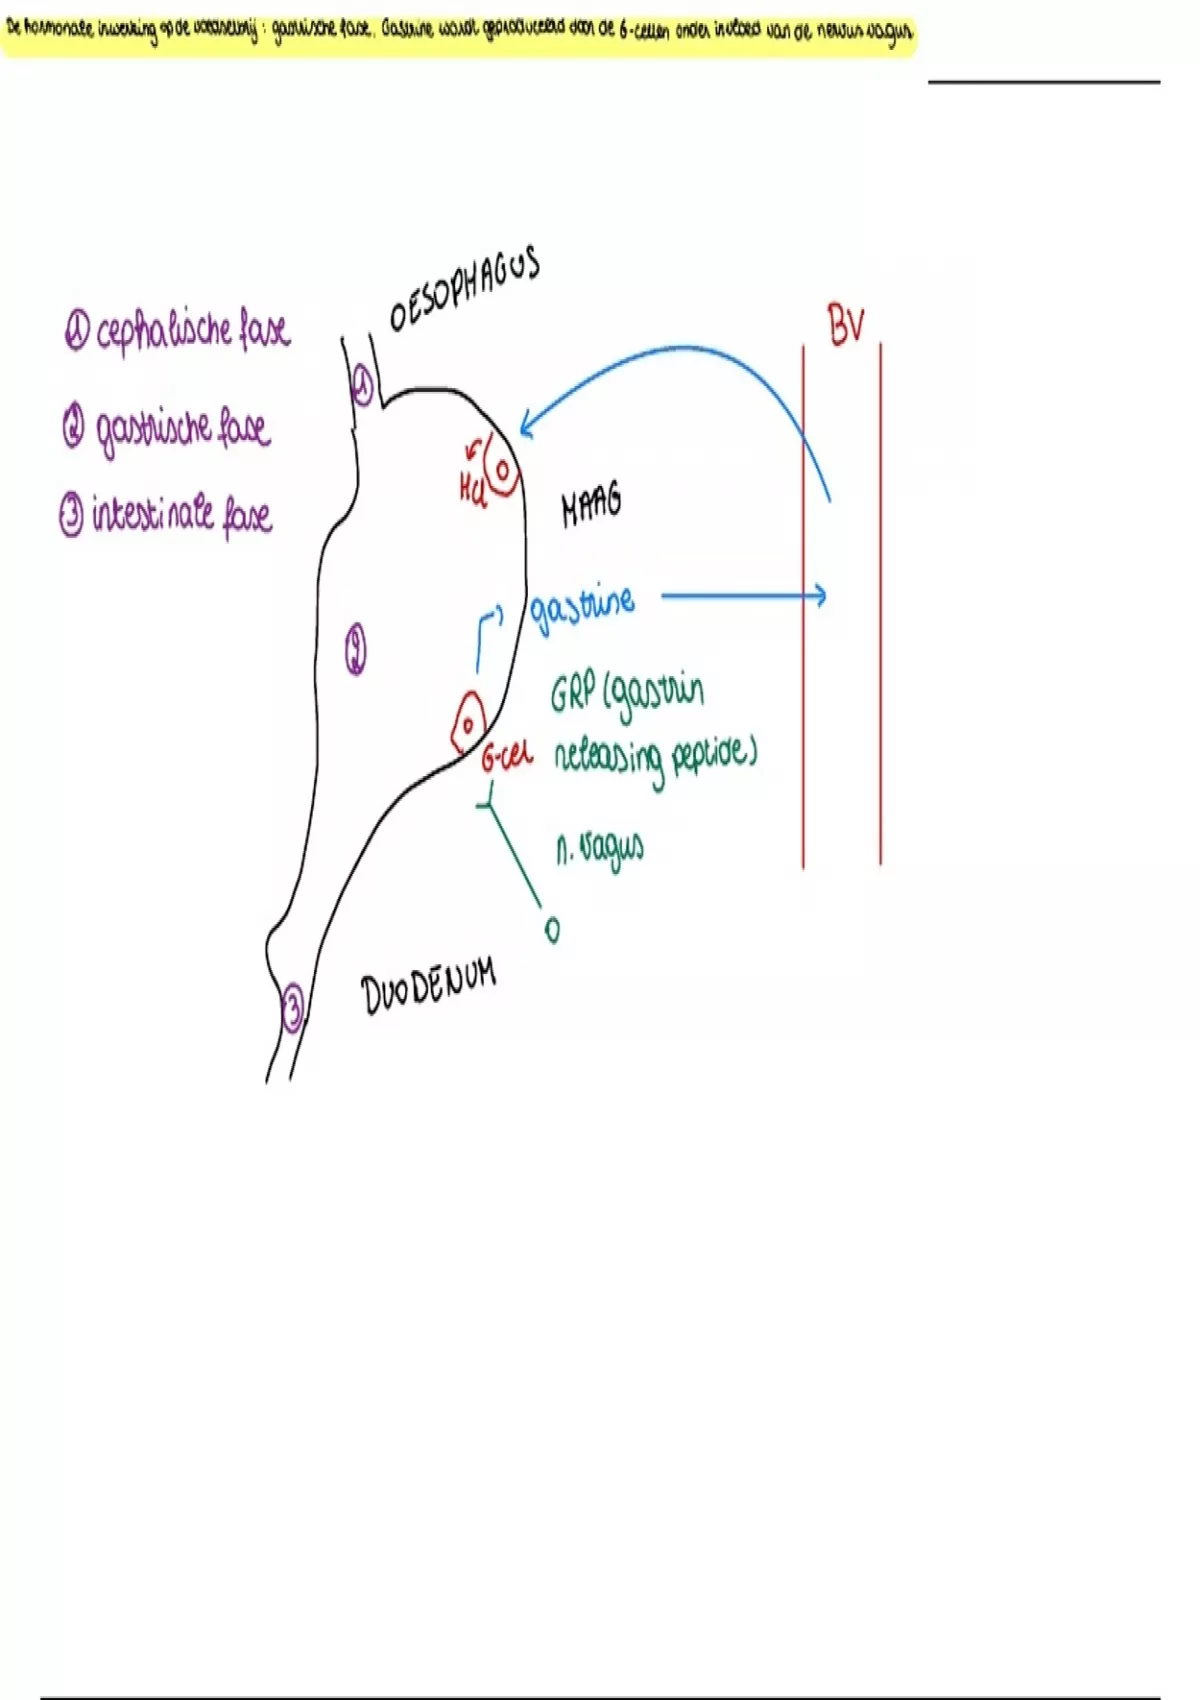 De hormonale inwerking op de voedselbrij : gastrische fase. Gastrine wordt geproduceerd door de G-cellen onder invloed van de nervus vagus
OESOPHAGUS
① cephalische fase
BV
①
② gastrische fase
HCl
MAAG
③ intestinale fase
gastrine
②
GRP (gastrin
releasing peptide)
G-cel
n. vagus
DUODENUM
③